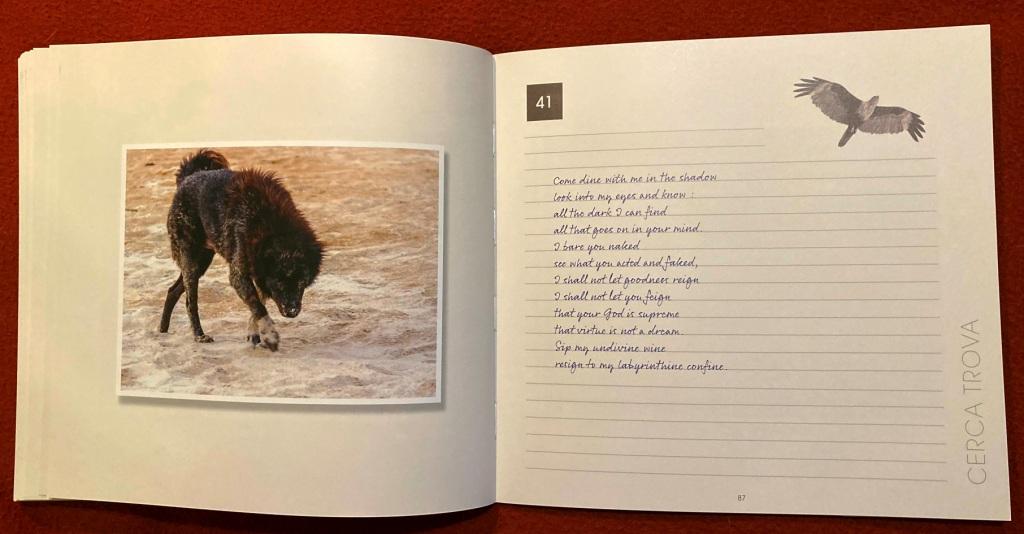 41
Come dine with me in the shadow
look into my eyes and know :
all the dark I can find
all that goes on in your mind.
I bare you naked
see what you acted and faked,
I shall not let goodness reign
I shall not let you feign
that your God is supreme
that virtue is not a dream.
Sip my undivine wine
resign to my labyrinthine confine.
87
CERCA TROVA